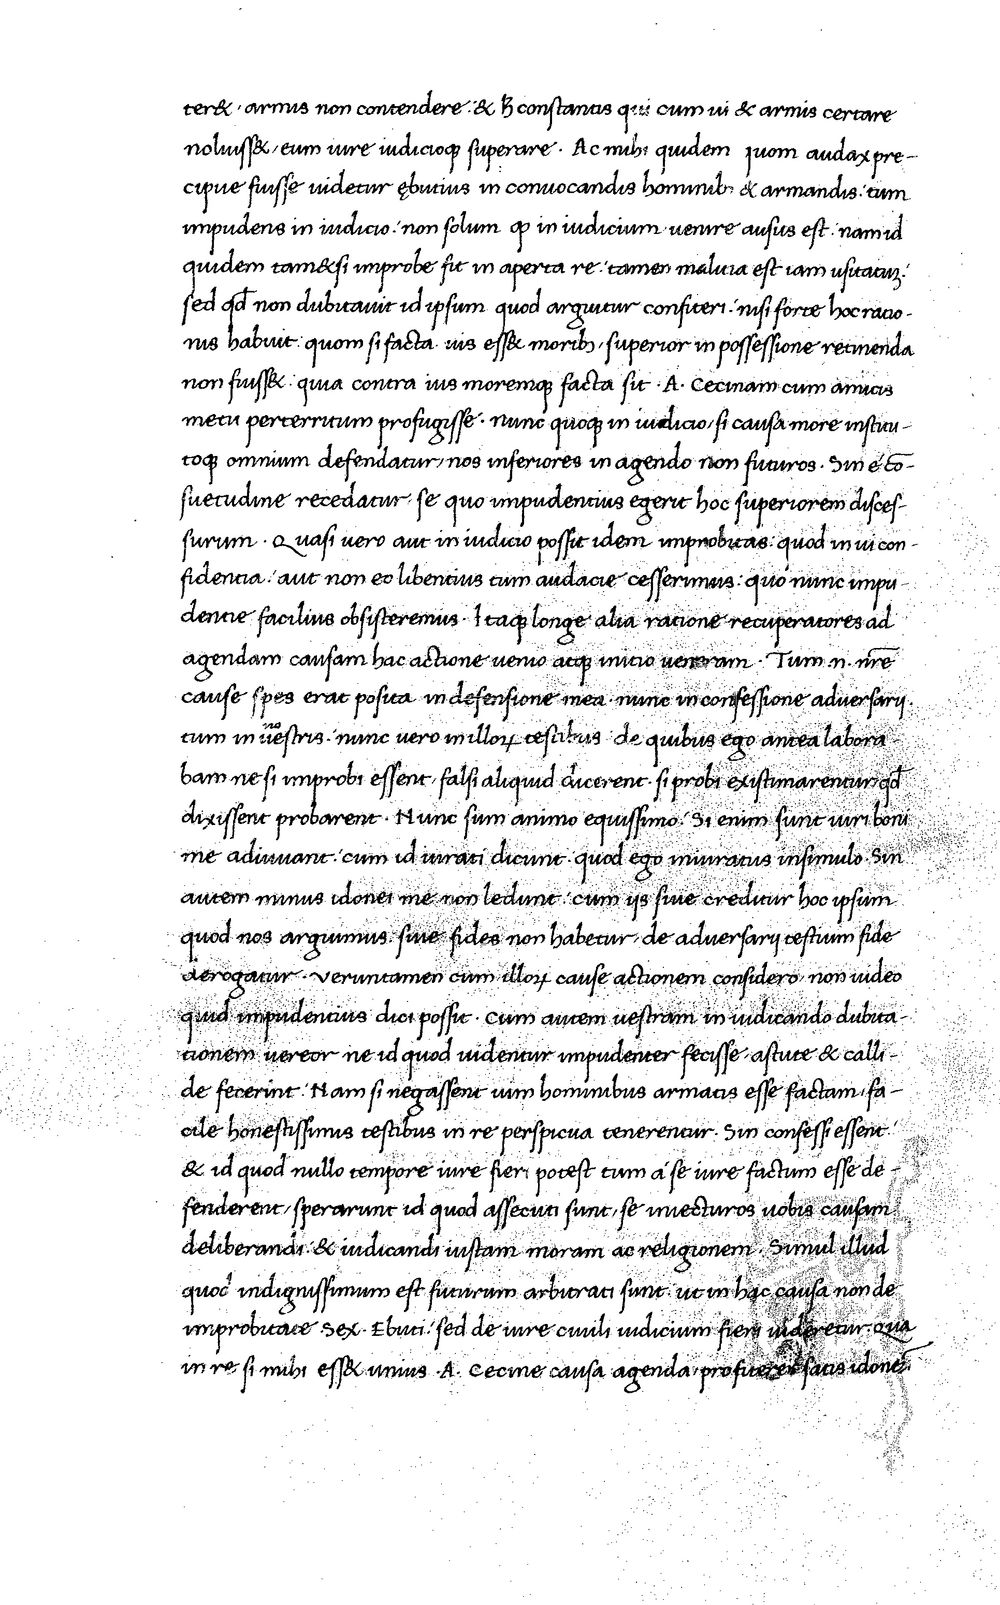 ter&. armis non contendere. & h̄ constantis qui cum ui & armis certare
noluiss&, eum iure iudicioqꝫ superare. Ac mihi quidem quom audax pre-
cipue fuisse uidetur ębutius in conuocandis hominibꝫ & armandis: tum
impudens in iudicio: non solum ꝙ in iudicium uenire ausus est: nam id
quidem tam&si improbe fit in aperta re: tamen malicia est iam usitatum:
sed qd̄ non dubitauit id ipsum quod arguitur confiteri: nisi forte hoc ratio-
nis habuit: quom si facta uis ess& moribꝫ, superior in possessione retinenda
non fuiss&: quia contra ius moremqꝫ facta sit. A. Cecinam cum amicis
metu perterritum profugisse. nunc quoqꝫ in iudicio, si causa more institu-
toqꝫ omnium defendatur, nos inferiores in agendo non futuros. Sin e cō-
suetudine recedatur, se quo impudentius egerit hoc superiorem disces-
surum. Quasi uero aut in iudicio possit idem improbitas: quod in ui con-
fidentia: aut non eo libentius tum audacie cesserimus: quo nunc impu-
dentie facilius obsisteremus. Itaqꝫ longe alia ratione recuperatores ad
agendam causam hac actione uenio atqꝫ initio ueneram. Tum .n. nr̄e
cause spes erat posita in defensione mea nunc in confessione aduersarij.
tum in uestris: nunc uero in illoꝝ testibus de quibus ego antea labora-
bam ne si improbi essent, falsi aliquid dicerent. si probi existimarentur, qd̄
dixissent probarent. Nunc sum animo equissimo. Si enim sunt uiri boni
me adiuuant: cum id iurati dicunt. quod ego iniuratus insimulo. Sin
autem minus idonei me non ledunt: cum ijs siue creditur hoc ipsum
quod nos arguimus. siue fides non habetur, de aduersarij testium fide
derogatur. Veruntamen cum illoꝝ cause actionem considero, non uideo
quid impudentius dici possit. Cum autem uestram in iudicando dubita-
tionem uereor ne id quod uidentur impudenter fecisse, astute & calli-
de fecerint. Nam si negassent uim hominibus armatis esse factam, fa-
cile honestissimis testibus in re perspicua tenerentur. Sin confessi essent:
& id quod nullo tempore iure fieri potest tum a se iure factum esse de-
fenderent, sperarunt id quod assecuti sunt, se iniecturos uobis causam
deliberandi: & iudicandi iustam moram ac religionem. Simul illud
quod indignissimum est futurum arbitrati sunt: ut in hac causa non de
improbitate Sex. Ebuti: sed de iure ciuili iudicium fieri uideretur. Qua
in re si mihi ess& unius .A. Cecine causa agenda, profiterer satis idoneū